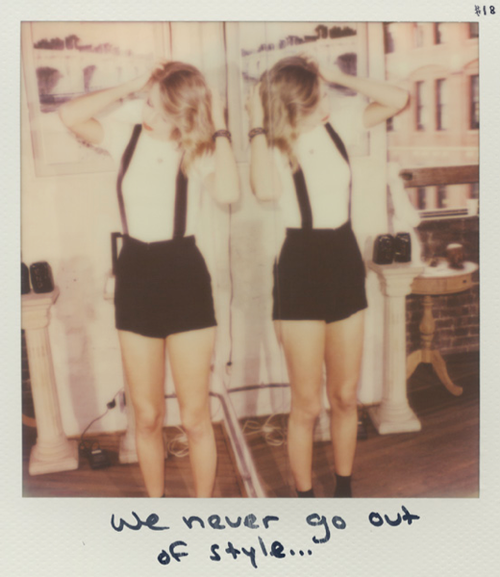 #18
We never go out
of style...